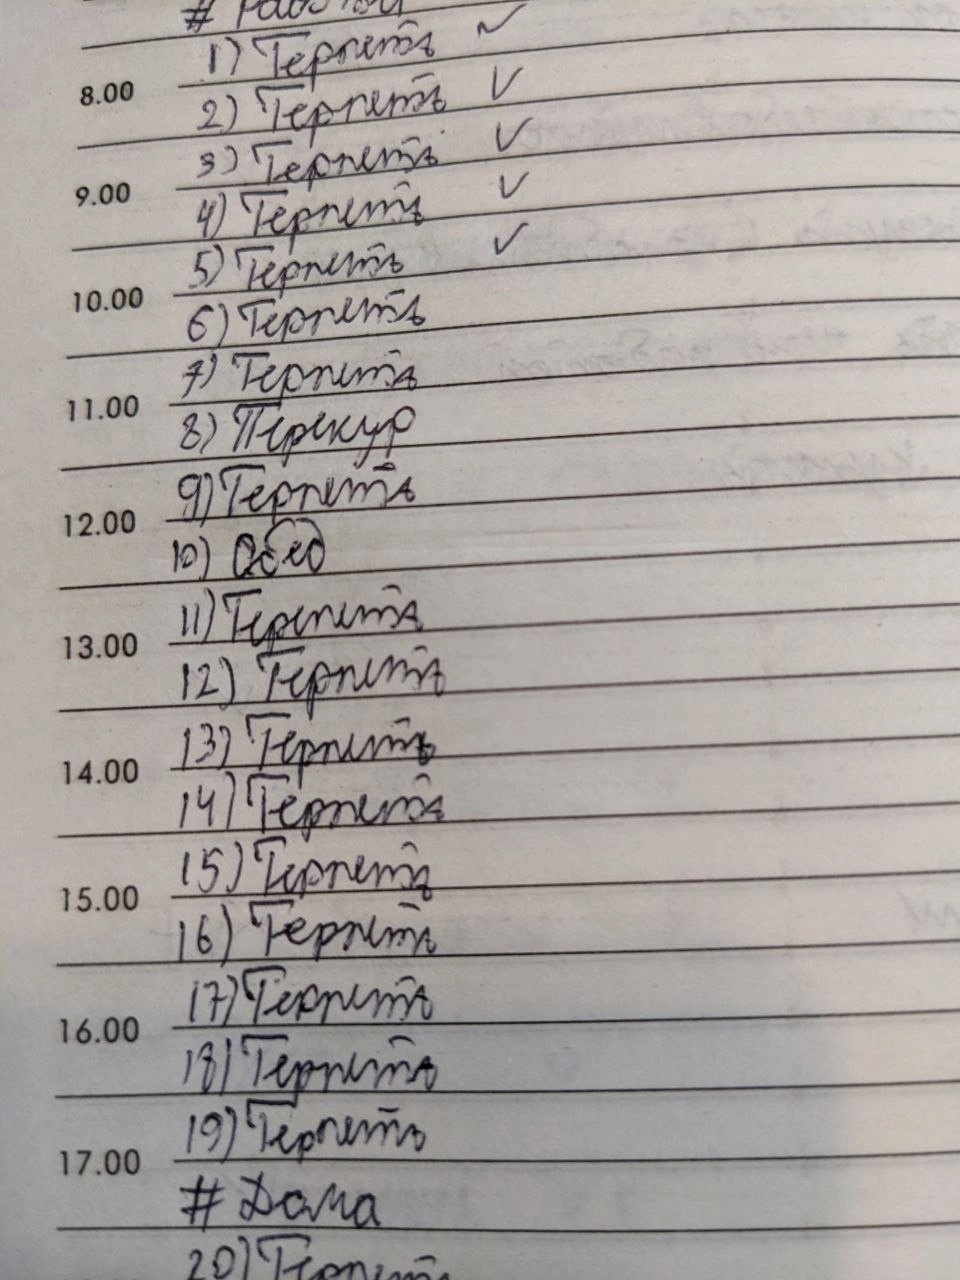 1) Терпеть ✓
8.00
2) Терпеть ✓
3) Терпеть ✓
9.00
4) Терпеть ✓
5) Терпеть ✓
10.00
6) Терпеть
7) Терпеть
11.00
8) Перекур
9) Терпеть
12.00
10) Обед
11) Терпеть
13.00
12) Терпеть
13) Терпеть
14.00
14) Терпеть
15) Терпеть
15.00
16) Терпеть
17) Терпеть
16.00
18) Терпеть
19) Терпеть
17.00
# Дома
20) Терпеть